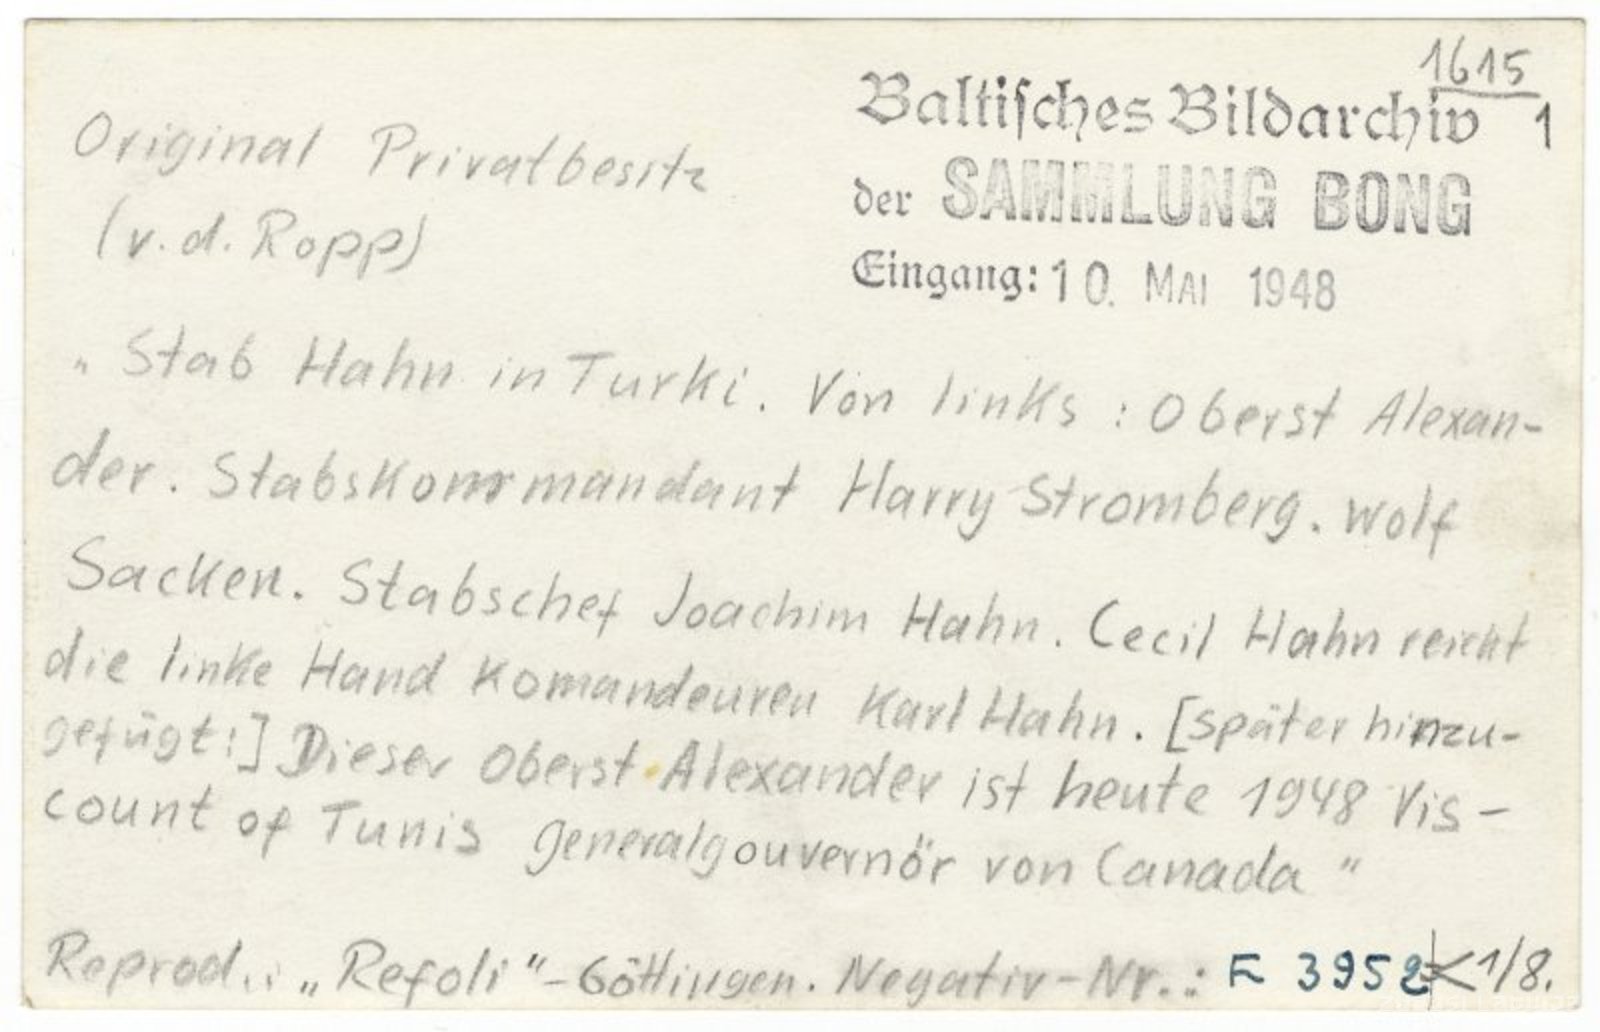 1615
1
Baltisches Bildarchiv
der SAMMLUNG BONG
Eingang: 10. MAI 1948
Original Privatbesitz
(v. d. Ropp)
„Stab Hahn in Turki. Von links: Oberst Alexan-
der. Stabskommandant Harry Stromberg. Wolf
Sacken. Stabschef Joachim Hahn. Cecil Hahn reicht
die linke Hand Komandeuren Karl Hahn. [später hinzu-
gefügt:] Dieser Oberst Alexander ist heute 1948 Vis-
count of Tunis Generalgouvernör von Canada"
Reprod.: „Refoli"-Göttingen. Negativ-Nr.: F 3952 1/8.